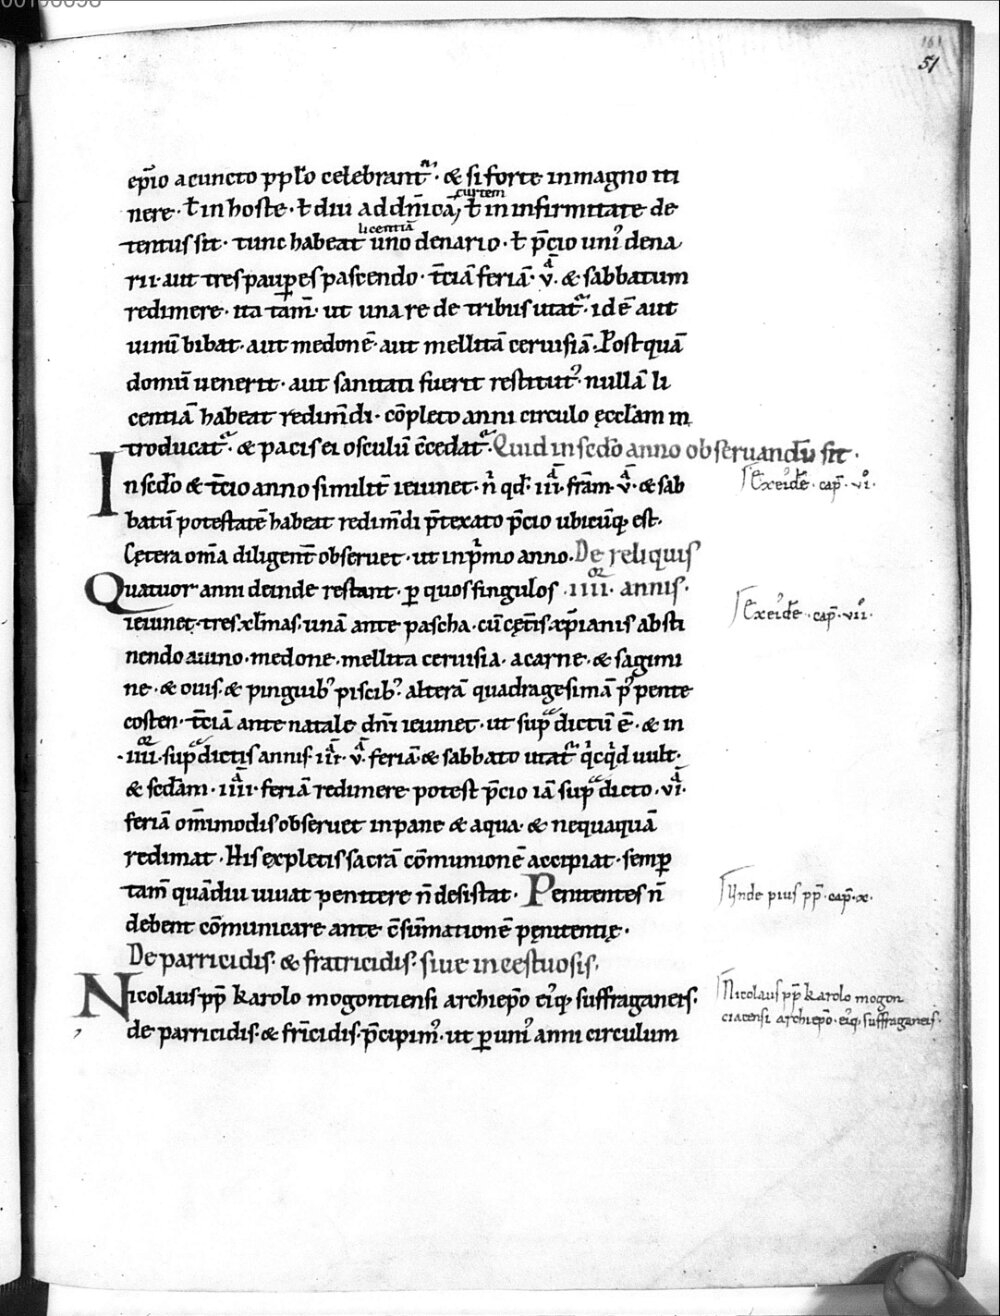 161
51
ep̄io a cuncto pp̄lo celebrant᷑. & si forte in magno iti
nere. ł in hoste. ł diu ad dn̄icā curtem, ł in infirmitate de
tentus sit. tunc habeat licentiā uno denario. ł p̄cio uni᷒ dena
rii. aut tres paup̱es pascendo. t̄ciā feriā. v̄. & sabbatum
redimere. ita tam̄. ut una re de tribus utat᷑. id ē aut
uinū bibat. aut medonē. aut mellitā ceruisiā. Postquā
domū uenerit. aut sanitati fuerit restitut᷒. nullā li
centiā habeat redim̄di. cōpleto anni circulo ęccl̄am in
troducat᷑. & pacis ei osculū c̄cedat᷑. Quid in sc̄do anno obseruandū sit.
In sc̄do & t̄cio anno similit̄ ieiunet. n̄ qd̄. iii. fr̄am. v. & sab
batū potestatē habeat redim̄di p̄texato p̄cio ubicūq; est.
Cętera om̄a diligent̄ obseruet. ut in p̄mo anno. De reliquis
Quatuor anni deinde restant. ꝑ quos singulos .iiii. annis.
ieiunet. tres xl̄mas. unā ante pascha. cū cęt̄is xp̄ianis absti
nendo a uino. medone. mellita ceruisia. a carne. & sagimi
ne. & ouis. & pinguib᷒ piscib᷒. alterā quadragesimā p᷒ pente
costen. t̄ciā ante natale dn̄i ieiunet. ut sup̄dictū ē. & in
.iiii. sup̄dictis annis iii. v. feriā & sabbato utat᷑ q̇cq̇d uult.
& sc̄dam. iiii. feriā redimere potest p̄cio iā sup̄dicto. vi.
feriā om̄imodis obseruet in pane & aqua. & nequaquā
redimat. His expletis sacrā cōmunionē accipiat. semꝑ
tam̄ quādiu uiuat penitere n̄ desistat. Penitentes n̄
debent cōmunicare ante c̄sūmationē pęnitentię.
De parricidis. & fratricidis. siue incestuosis.
Nicolaus pp̄ karolo mogontiensi archiep̄o ei᷒q; suffraganeis.
de parricidis. & fr̄icidis. p̄cipim᷒. ut ꝑ uni᷒ anni circulum
Ex eod̄e. cap̄. vi.
Ex eod̄e. cap̄. vii.
Vnde pius pp̄. cap̄. x.
Nicolaus pp̄ karolo mogon
ciacensi archiep̄o. ei᷒q; suffraganeis.